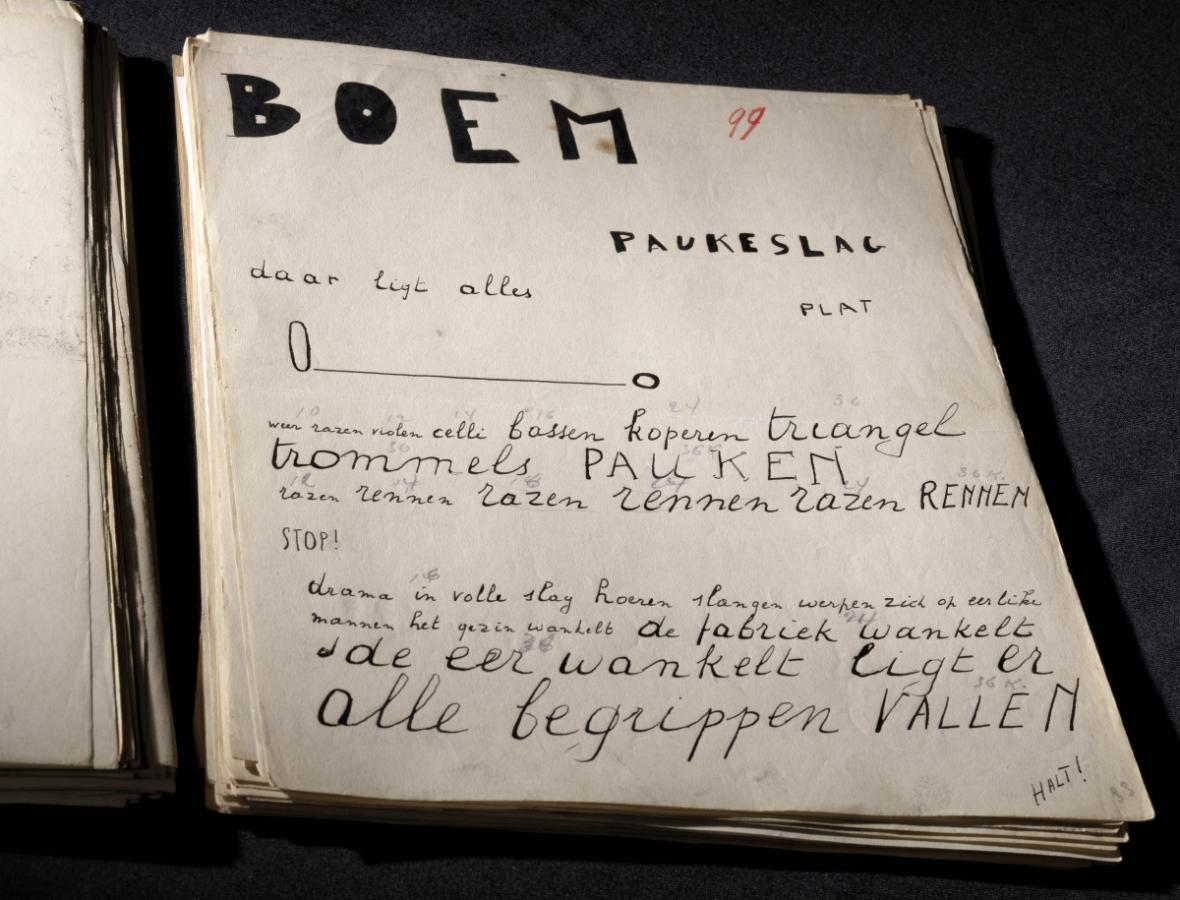 BOEM
99
PAUKESLAG
daar ligt alles
PLAT
O o
weer razen violen celli bassen koperen triangel
trommels PAUKEN
razen rennen razen rennen razen RENNEN
STOP!
drama in volle slag hoeren slangen werpen zich op eerlike
mannen het gezin wankelt de fabriek wankelt
de eer wankelt ligt er
alle begrippen VALLEN
HALT!